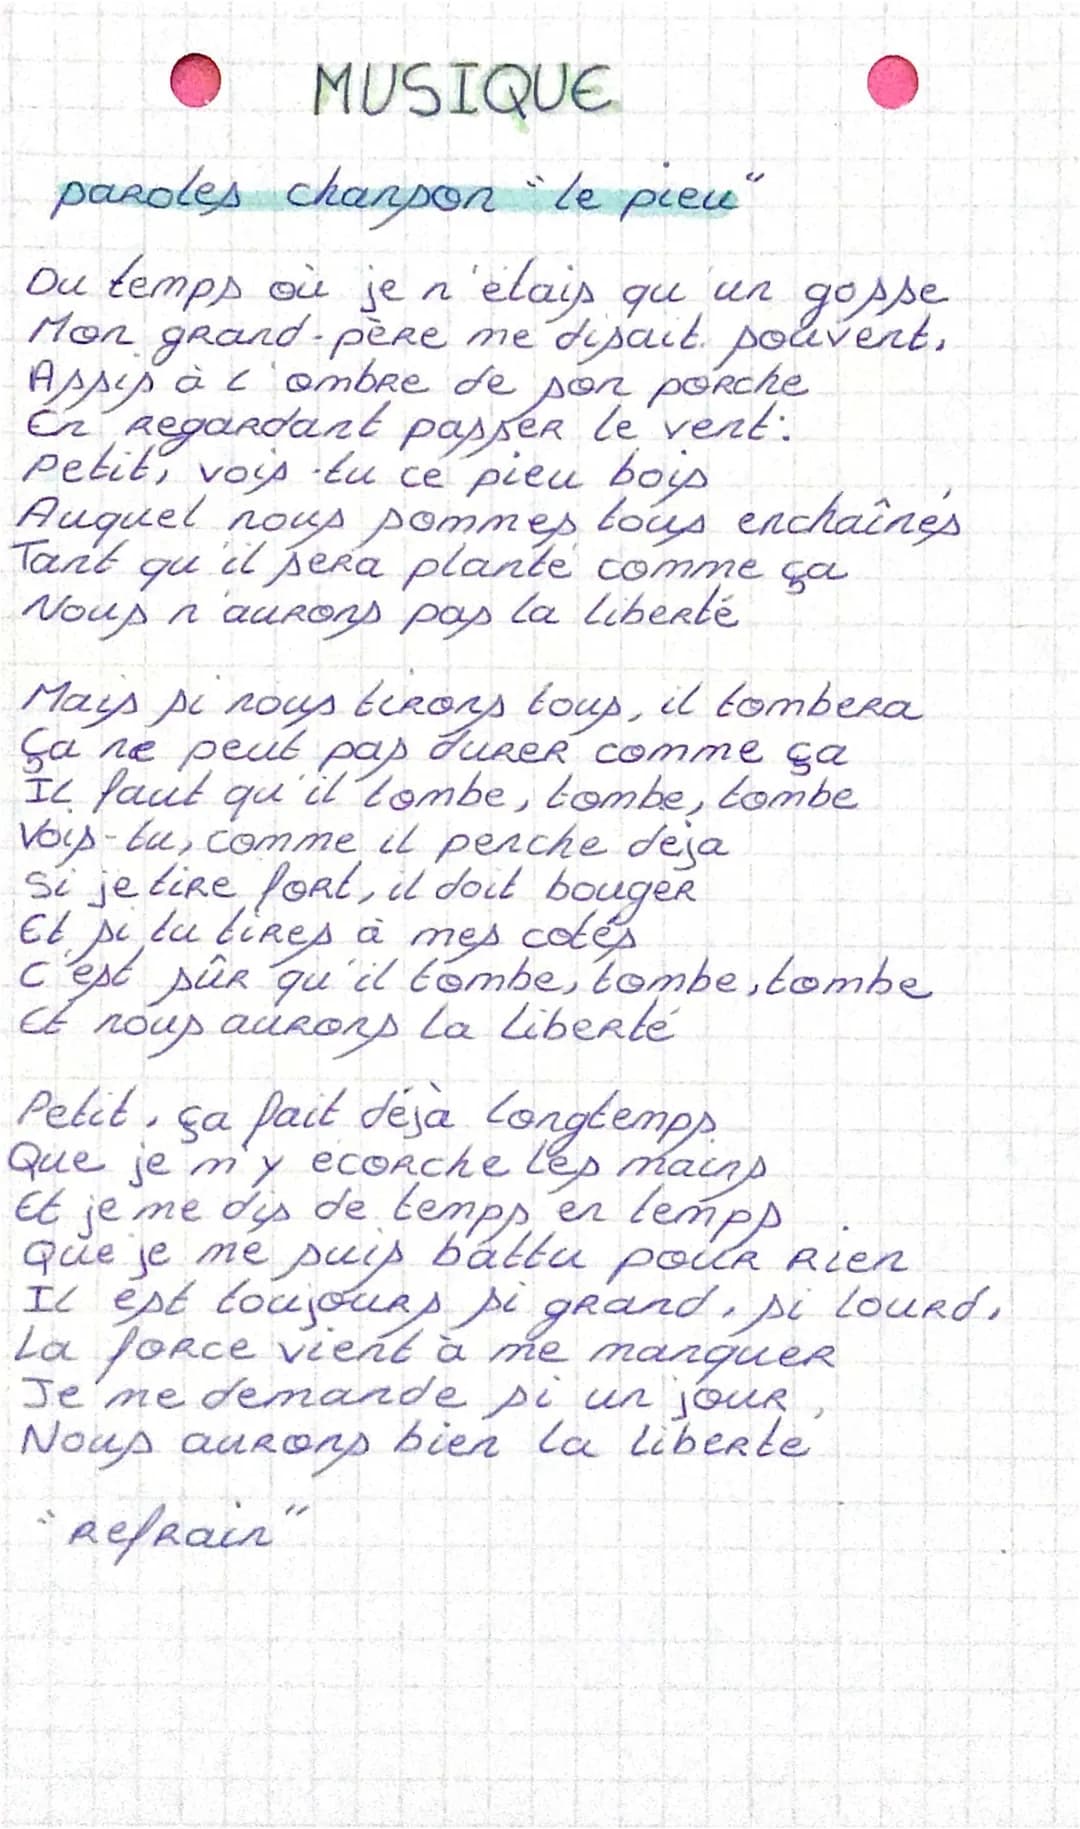 MUSIQUE
paroles chanson "le pieu"
Du temps où je n'étais qu'un gosse
Mon grand-père me disait souvent,
Assis à l'ombre de son porche
En regardant passer le vent:
Petit, vois-tu ce pieu bois
Auquel nous sommes tous enchaînés
Tant qu'il sera planté comme ça
Nous n'aurons pas la liberté
Mais si nous tirons tous, il tombera
Ça ne peut pas durer comme ça
Il faut qu'il tombe, tombe, tombe
Vois-tu, comme il penche déja
Si je tire fort, il doit bouger
Et si tu tires à mes cotés
C'est sûr qu'il tombe, tombe, tombe
Et nous aurons la liberté
Petit, ça fait déjà longtemps
Que je m'y ecorche les mains
Et je me dis de temps en temps
Que je me suis battu pour rien
Il est toujours si grand, si lourd,
La force vient à me manquer
Je me demande si un jour,
Nous aurons bien la liberté
"refrain"